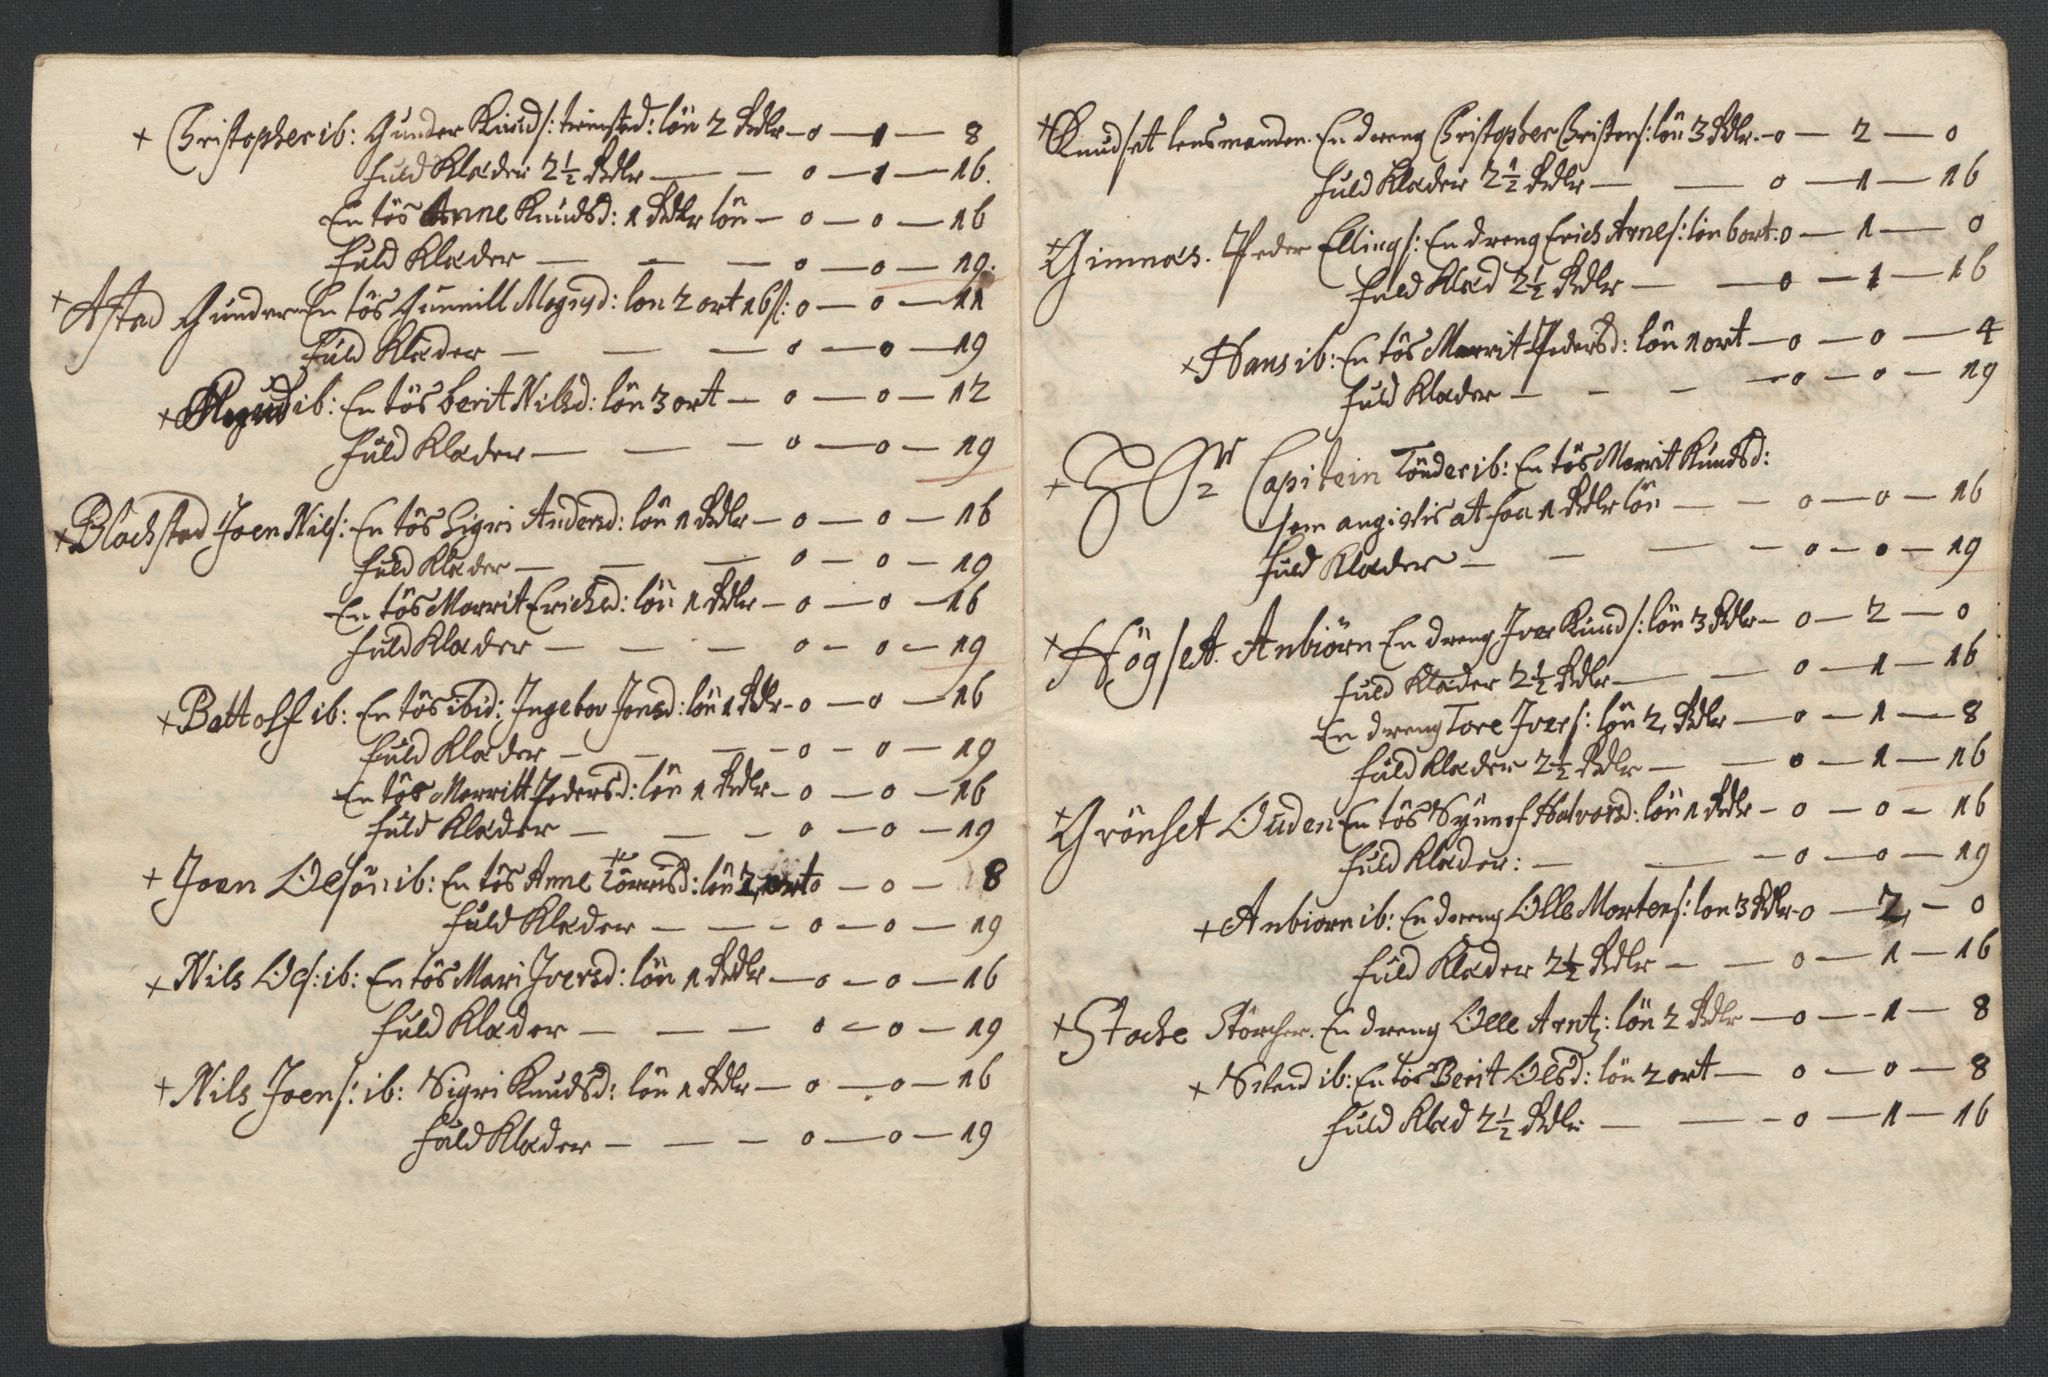 + Christopher ib: Gunder Knuds: lön 2 Rdlr – 0 — 1 — 8
fuld Klæder 2½ Rdlr — — 0 — 1 — 16.
En tös Anne Knudsd: 1 Rdlr lön — 0 — 0 — 16
fuld Klæder — — — 0 — 0 — 19.
+ Astad Gunder En tös Gunnill Mognsd: lon 2 ort 16 s: 0 — 0 — 11
fuld Klæder — — — 0 — 0 — 19
+ ib: En tös berit Nilsd: lön 3 ort — 0 — 0 — 12
fuld Klæder — — — 0 — 0 — 19
+ Blochstad Joen Nils: En tös Sigri Andersd: lön 1 Rdlr — 0 — 0 — 16
fuld Klæder — — — 0 — 0 — 19
En tös Marrit Erichsd: lön 1 Rdlr — 0 — 0 — 16
fuld Klæder — — — 0 — 0 — 19
+ Battolf ib: En tös ibid: Ingebor Jonsd: lön 1 Rdlr – 0 — 0 — 16
fuld Klæder — — — 0 — 0 — 19
En tös Marritt Pedersd: lön 1 Rdlr – 0 — 0 — 16
fuld Klæder — — — 0 — 0 — 19
+ Joen Olsön ib: En tös Anne Törrisd: lön 2 ort 0 — 0 — 8
fuld Klæder — — — 0 — 0 — 19
+ Nils Ols: ib: En tös Mari Iversd: lön 1 Rdlr — 0 — 0 — 16
fuld Klæder — — — 0 — 0 — 19
+ Nils Joens: ib: Sigri Knudsd: lön 1 Rdlr — 0 — 0 — 16
fuld Klæder — — — 0 — 0 — 19
+ Knudset lensmanden. En dreng Christopher Christens: lön 3 Rdlr. – 0 — 2 — 0
fuld Klæder 2½ Rdlr — — 0 — 1 — 16
+ Gimnæs. Peder Ellings: En dreng Erich Arnes: lön bort: 0 — 1 — 0
fuld Klæd 2½ Rdlr — — 0 — 1 — 16
+ Hans ib: En tös Marrit Pedersd: lön 1 ort — 0 — 0 — 4
fuld Klæder — — — 0 — 0 — 19
+ Capitein Tönder ib: En tös Marrit Knudsd:
som angivis at faa 1 Rdlr lön — — 0 — 0 — 16
fuld Klæder — — — — 0 — 0 — 19
+ Högset. Anbiörn En dreng Iver Knuds: lön 3 Rdlr – 0 — 2 — 0
fuld Klæder 2½ Rdlr — — 0 — 1 — 16
En dreng Tore Ivers: lön 2 Rdlr — 0 — 1 — 8
fuld Klæder 2½ Rdlr — — 0 — 1 — 16
+ Grönset Ouden En tös Synnof Halvorsd: lön 1 Rdlr — 0 — 0 — 16
fuld Klæder: — — — 0 — 0 — 19
+ Anbiorn ib: En dreng Olle Mortens: lon 3 Rdlr – 0 — 2 — 0
fuld Klæder 2½ Rdlr — — 0 — 1 — 16
+ Stoche Störcher. En dreng Olle Arntz: lön 2 Rdlr — 0 — 1 — 8
+ ib: En tös Berit Olsd: lön 2 ort — 0 — 0 — 8
fuld Klæd 2½ Rdlr — — 0 — 1 — 16